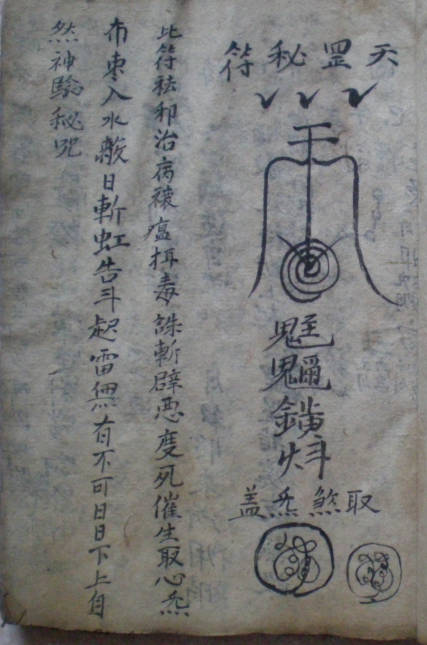 天罡秘符
取煞炁盖
此符祛邪治病禳瘟拑毒誅斬辟惡度死催生取心炁
布東入水酸日斬虹告斗起雷無有不可日日下上自
然神驗秘咒